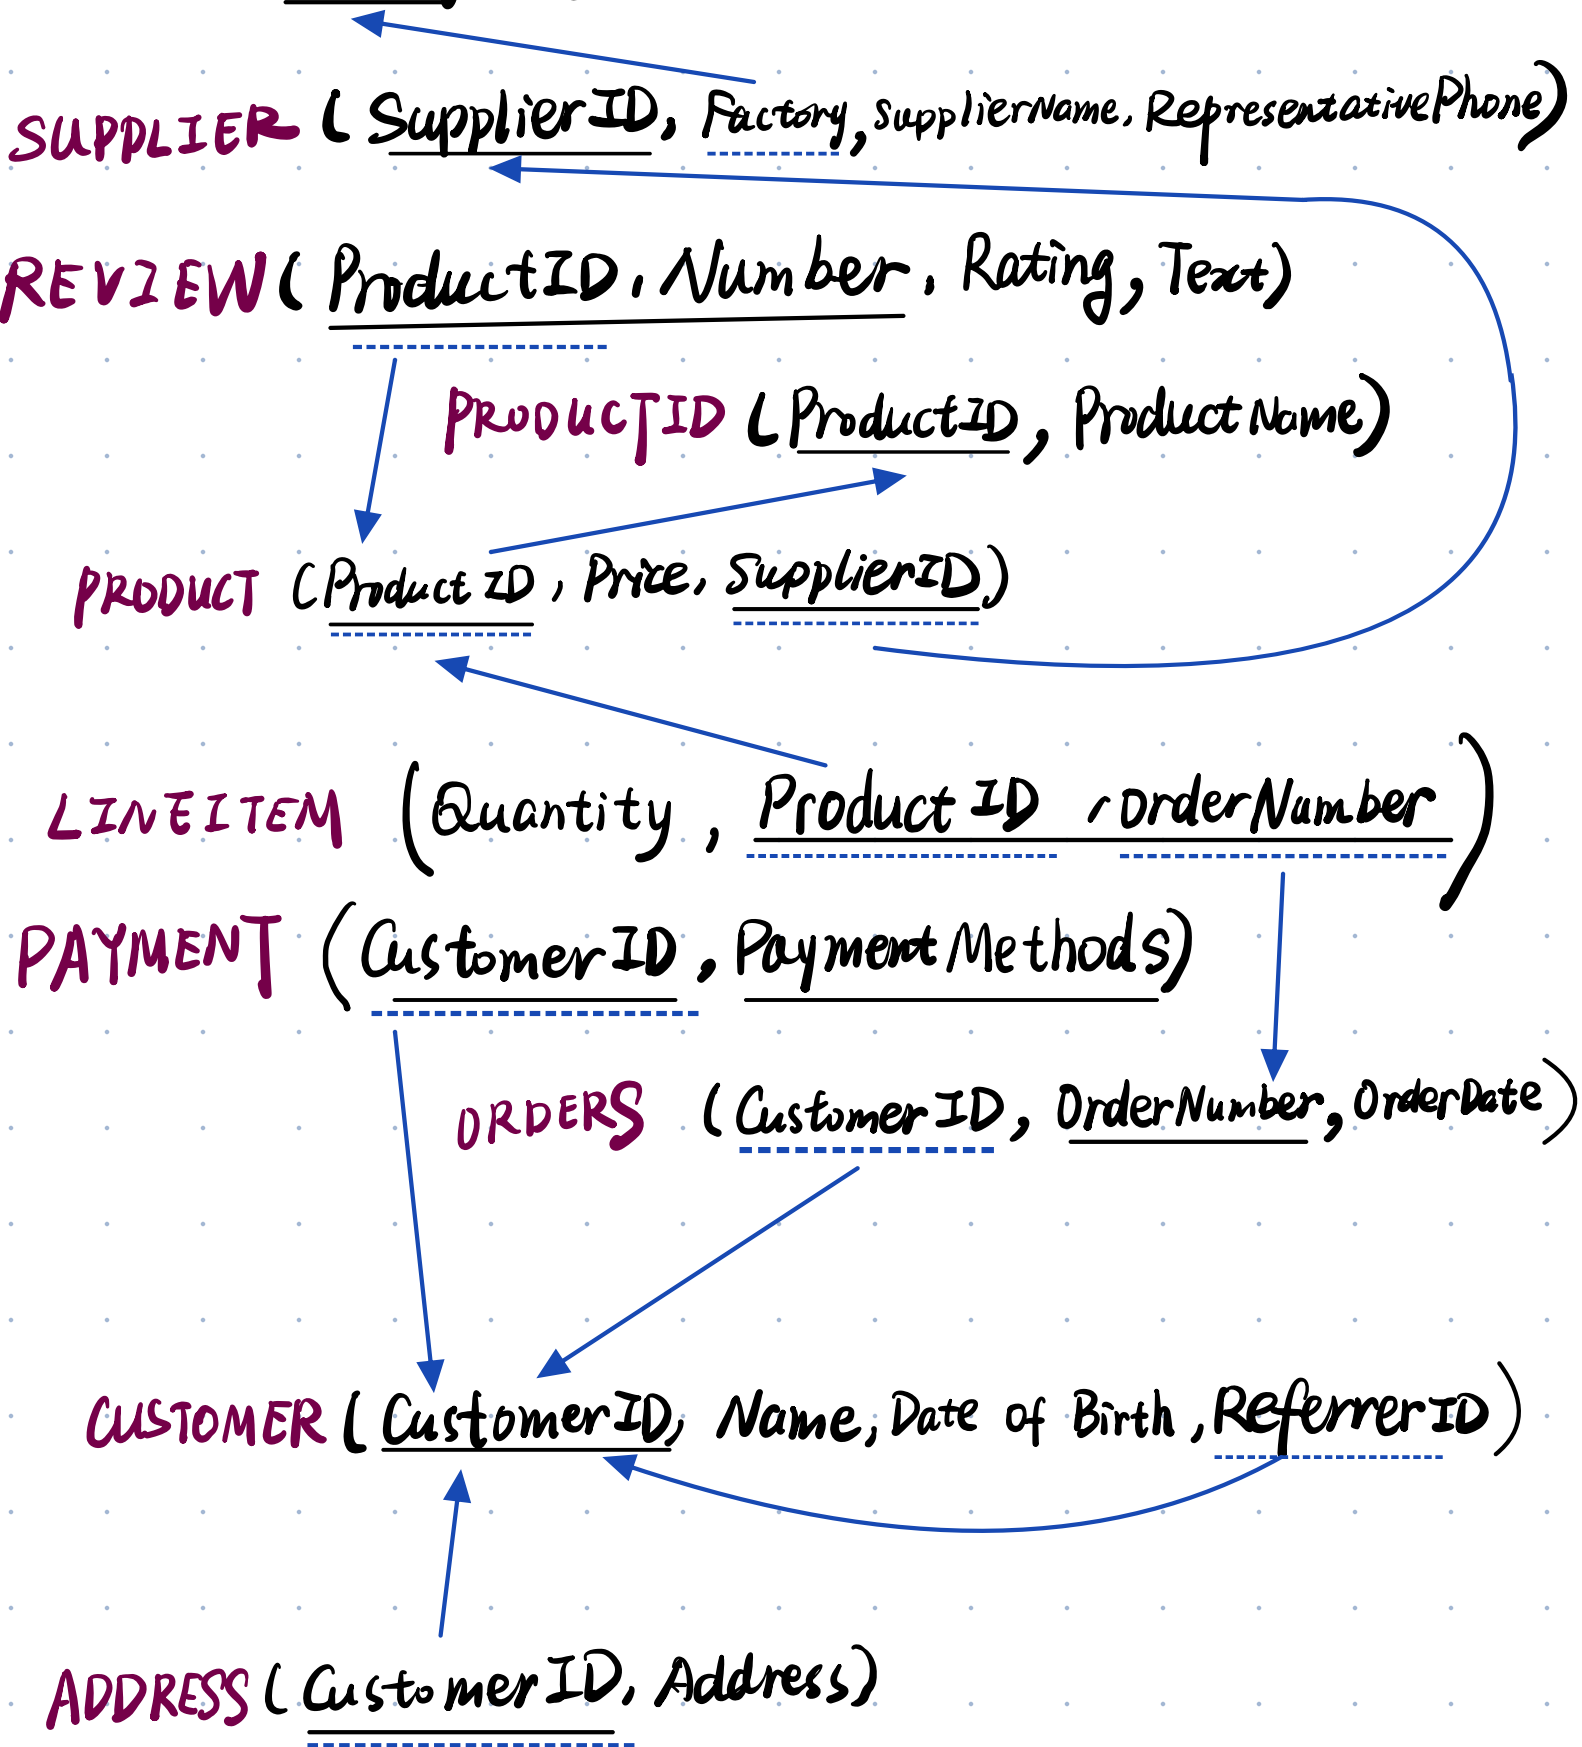 SUPPLIER (SupplierID, Factory, SupplierName, RepresentativePhone)
REVIEW (ProductID, Number, Rating, Text)
PRODUCTID (ProductID, ProductName)
PRODUCT (ProductID, Price, SupplierID)
LINEITEM (Quantity, ProductID, OrderNumber)
PAYMENT (CustomerID, PaymentMethods)
ORDERS (CustomerID, OrderNumber, OrderDate)
CUSTOMER (CustomerID, Name, Date of Birth, ReferrerID)
ADDRESS (CustomerID, Address)